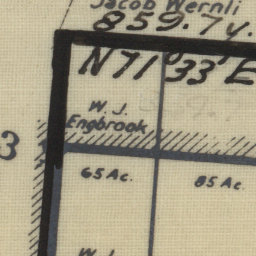 Jacob Wernli
859.7 y.
N 71° 33' E
W. J.
Engbrook
3
65 Ac.
85 Ac.
W. J.